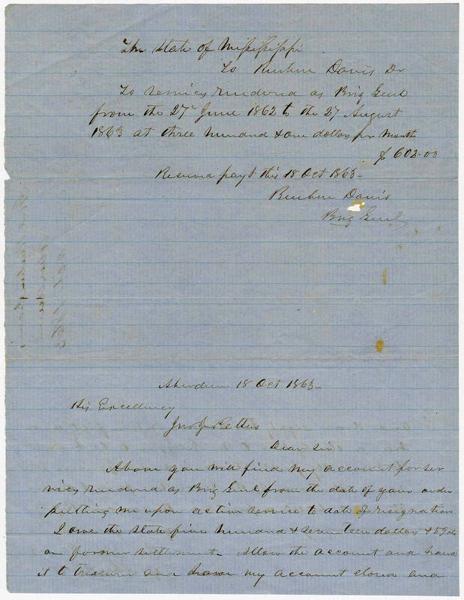 The State of Mississippi
To Reuben Davis Dr
To services rendered as Brig Genl
from the 27th June 1862 to the 27 August
1863 at three hundred & one dollars per Month
$ 602.00
Received payt this 18 Oct 1863
Reuben Davis
Brig Genl
Aberdeen 18 Oct 1863
His Excellency
Jno J Pettus
Dear Sir
Above you will find my account for ser
vices rendered as Brig Genl from the date of your order
putting me upon active service to date of resignation
I owe the State five hundred & seventeen dollars &
on former settlement. Allow the account and have
it to and my account closed and